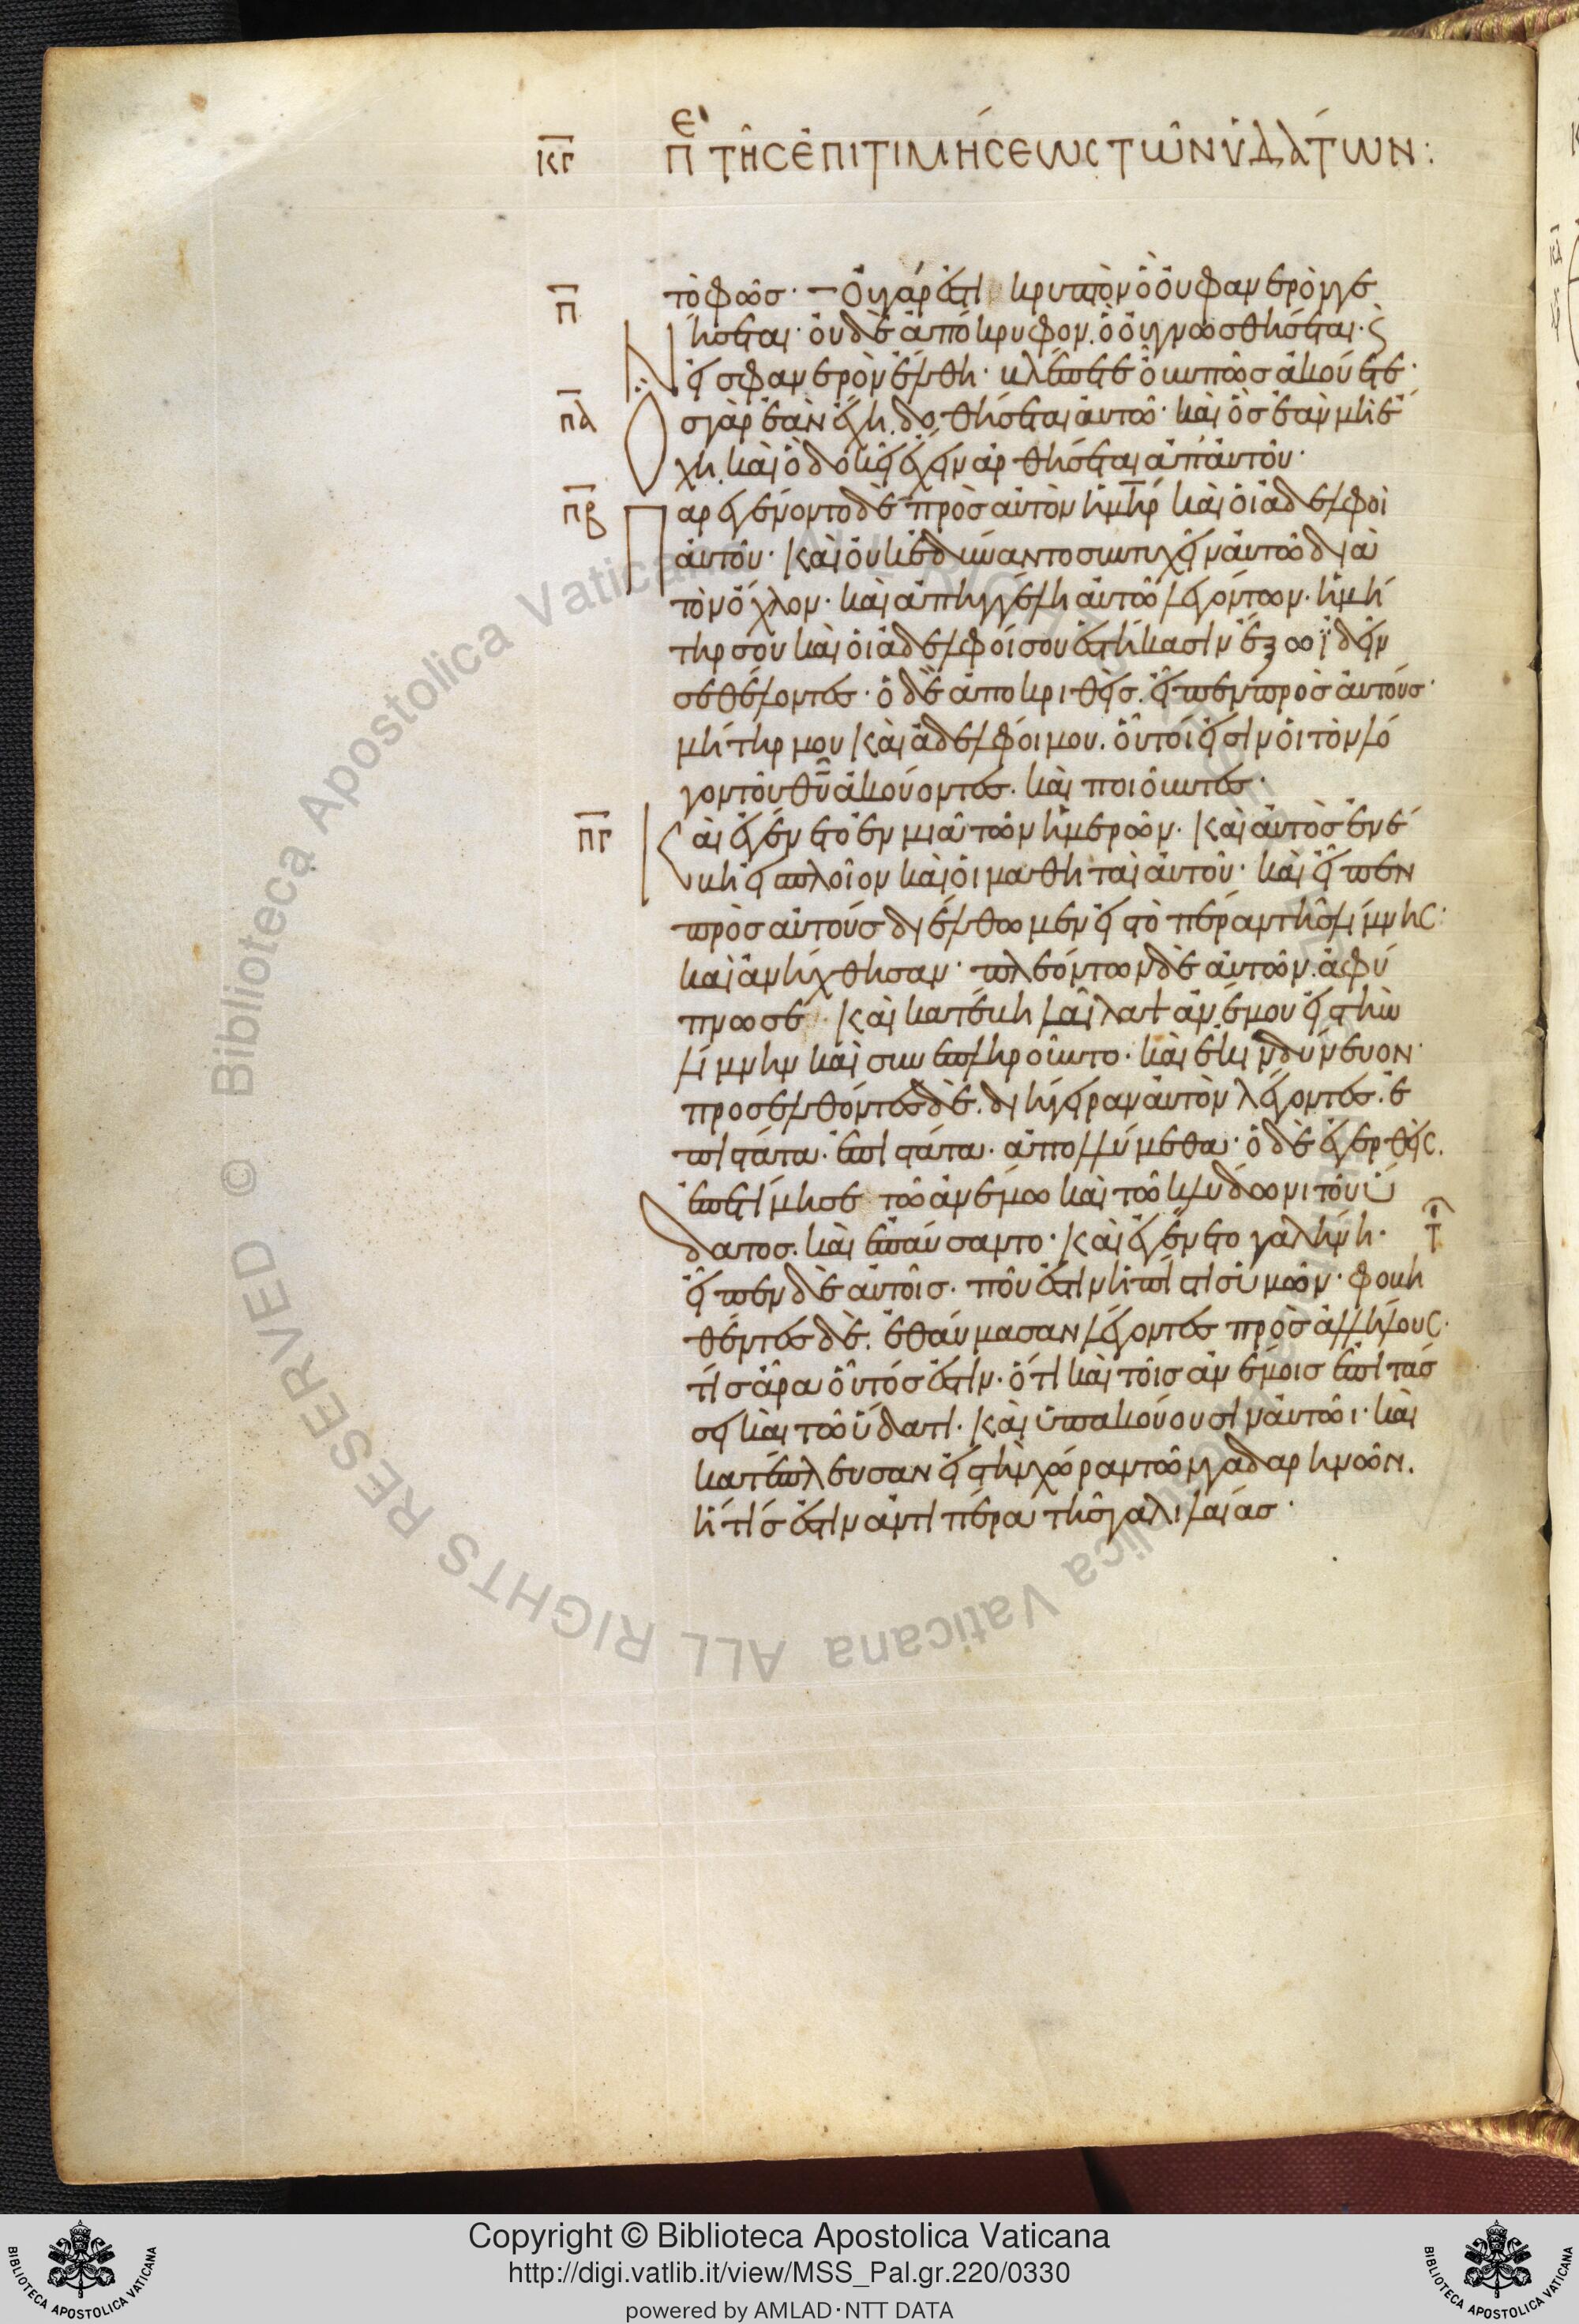 κγ πε' τῆς ἐπιτιμήσεως τῶν ὑδάτων:
π τὸ φῶσ· οὐ γάρ ἐστι κρυπτὸν ὃ οὐ φανερὸν γε
Νήσεται· οὐδὲ ἀπόκρυφον. ὃ οὐ γνωσθήσεται· ϛ
εἰσ φανερὸν ἔλθη· βλέπετε οὖν πῶσ ἀκούετε·
πα Οσ γὰρ ἐὰν ἔχη. δοθήσεται αὐτῶ· καὶ ὃσ ἐὰν μὴ ἔ
χη. καὶ ὃ δοκεῖ ἔχειν ἀρθήσεται ἀπ' αὐτοῦ·
πβ Παρεγένοντο δὲ πρὸσ αὐτὸν ἡ μηρ καὶ οἱ ἀδελφοὶ
αὐτοῦ· καὶ οὐκ ἐδύναντο συντυχεῖν αὐτῶ διὰ
τὸν ὄχλον· καὶ ἀπηγγέλη αὐτῶ λεγόντων· ἡ μή
τηρ σου καὶ οἱ ἀδελφοί σου ἑστήκασιν ἔξω ϊδεῖν
σε θέλοντεσ· ὁ δὲ ἀποκριθεὶσ. εἶπεν πρὸσ αὐτούσ·
μήτηρ μου καὶ ἀδελφοί μου. οὗτοί εἰσιν οἱ τὸν λό
γον τοῦ θυ ἀκούοντεσ. καὶ ποιοῦντεσ·
πγ Καὶ ἐγένετο ἐν μιᾶ τῶν ἡμερῶν· καὶ αὐτὸσ ἐνέ
βη εἰ πλοῖον καὶ οἱ μαθηταὶ αὐτοῦ· καὶ εἶπεν
πρὸσ αὐτούσ διέλθωμεν εἰσ τὸ πέραν τῆσ λίμνης·
καὶ ἀνήχθησαν· πλεόντων δὲ αὐτῶν. ἀφύ
πνωσε· καὶ κατέβη λαῖλαψ ἀνέμου εἰσ τὴν
λίμνην καὶ συνεπληροῦντο· καὶ ἐκινδύνευον·
προσελθόντεσ δὲ. διήγειραν αὐτὸν λέγοντεσ. ἐ
πιστάτα· ἐπιστάτα· ἀπολλύμεθα· ὁ δὲ ἐγερθεὶς.
ἐπετίμησε τῶ ἀνέμω καὶ τῶ κλύδωνι τοῦ ὕ
δατοσ. καὶ ἐπαύσαντο· καὶ ἐγένετο γαλήνη·
εἶπεν δὲ αὐτοῖσ. ποῦ ἐστιν ἡ πίστισ ὑμῶν· φοβη
θέντεσ δὲ. ἐθαύμασαν λέγοντεσ πρὸσ ἀλλήλους·
τίσ ἄρα οὗτόσ ἐστιν· ὅτι καὶ τοῖσ ἀνέμοισ ἐπιτάσ
σει καὶ τῶ ὕδατι. καὶ ὑπακούουσιν αὐτῶι· καὶ
κατέπλευσαν εἰσ τὴν χώραν τῶν γαδαρηνῶν.
ἥτίσ ἐστιν ἀντιπέρα τῆσ γαλιλαίασ·
© Biblioteca Apostolica Vaticana ALL RIGHTS RESERVED
Copyright © Biblioteca Apostolica Vaticana
http://digi.vatlib.it/view/MSS_Pal.gr.220/0330
powered by AMLAD·NTT DATA
BIBLIOTECA APOSTOLICA VATICANA
BIBLIOTECA APOSTOLICA VATICANA